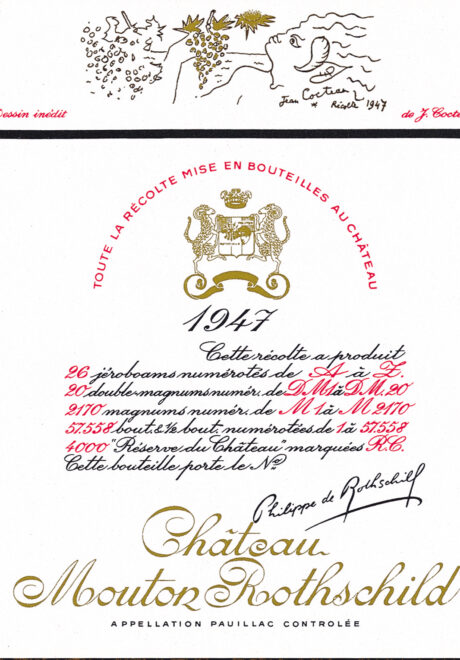 Jean Cocteau
* Régor 1947
Dessin inédit
de J. Cocte
TOUTE LA RÉCOLTE MISE EN BOUTEILLES AU CHÂTEAU
1947
Cette récolte a produit
26 jéroboams numérotés de A à Z
20 double-magnums numér. de DM1 à DM. 20
2170 magnums numér. de M1 à M 2170
57.558 bout. & ½ bout. numérotées de 1 à 57.558
4000 "Réserve du Château" marquées R.C.
Cette bouteille porte le No
Philippe de Rothschild
Château
Mouton Rothschild
APPELLATION PAUILLAC CONTROLÉE